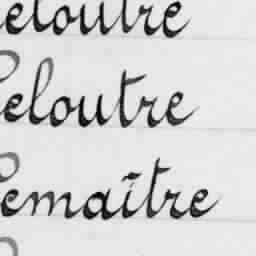 Leloutre
Leloutre
Lemaître